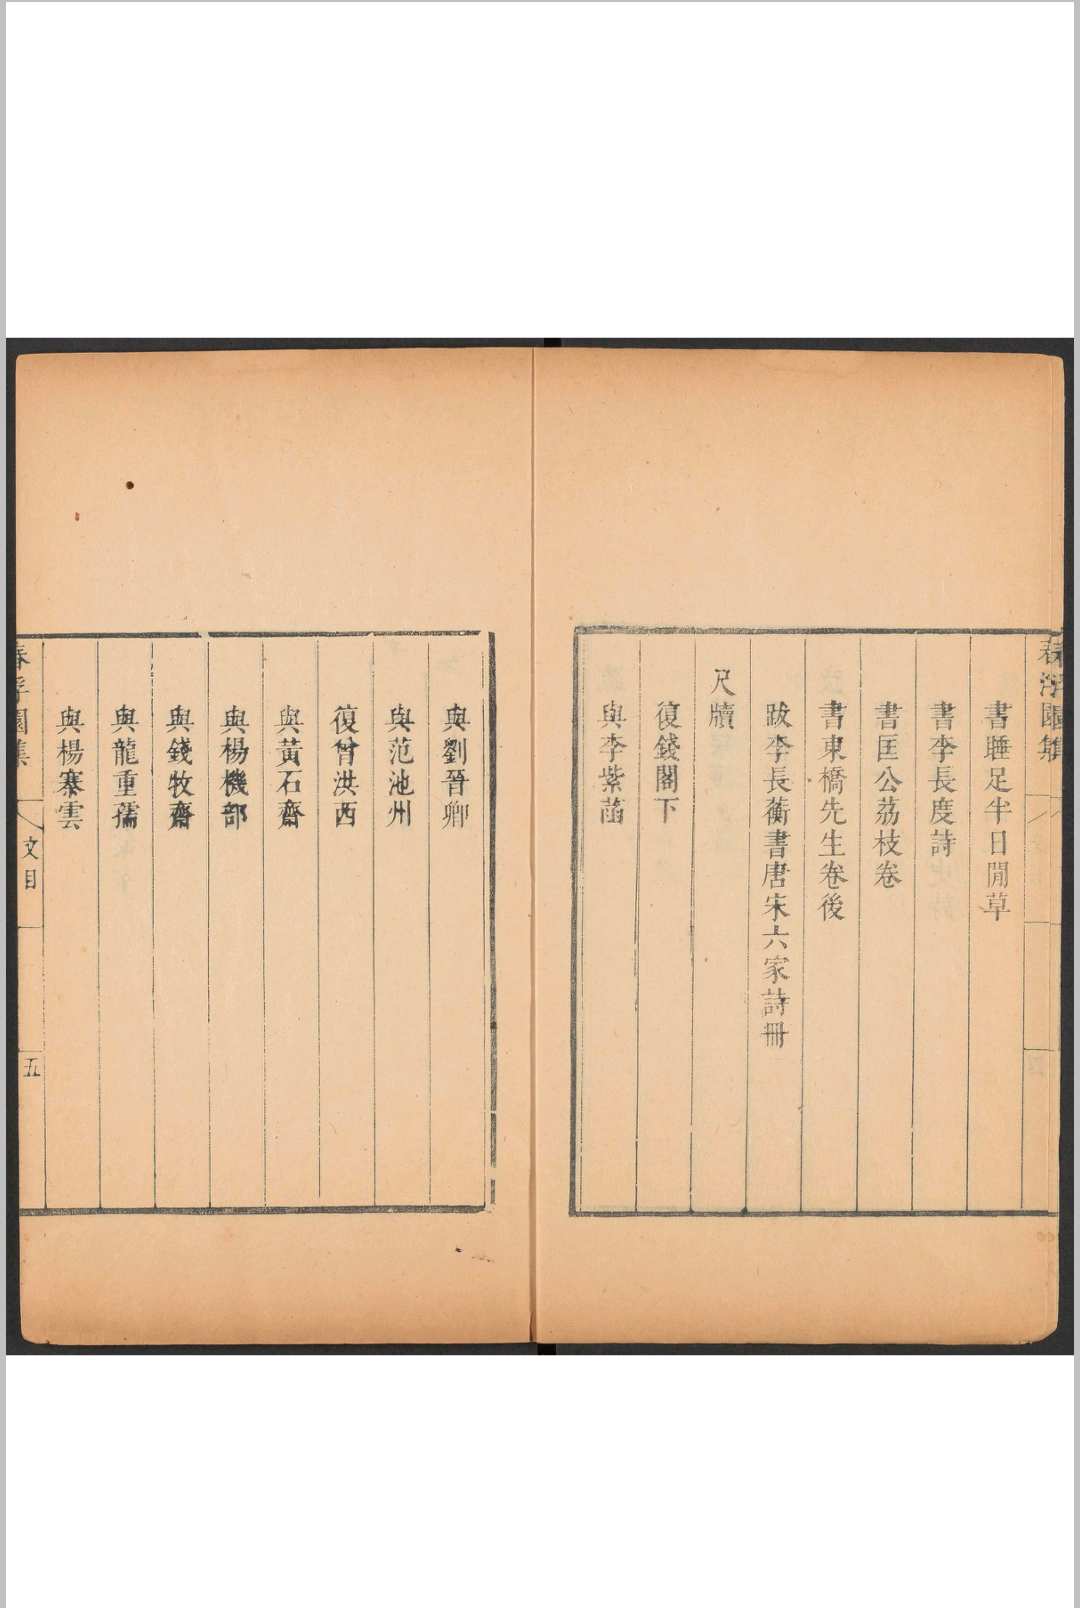 春浮園集
書睡足半日閒草
書李長度詩
書匡公荔枝卷
書東橋先生卷後
跋李長蘅書唐宋六家詩冊
尺牘
復錢閣下
與李紫菡
與劉晉卿
與范池州
復曾洪西
與黃石齋
與楊機部
與錢牧齋
與龍重孺
與楊寨雲
春浮園集
文目
五